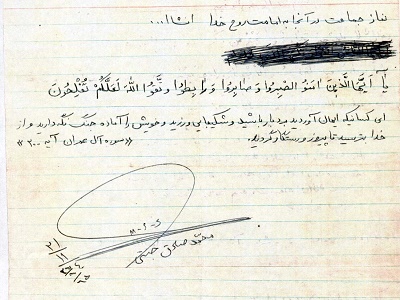 نماز جماعت در آنجا به امامت روح خدا انشاا...
یا أیها الذین امنو الصبروا و صابروا و رابطوا و تقوا الله لعلکم تفلحون
ای کسانیکه ایمان آوردید بردبار باشید و شکیبایی ورزید و خویش را آماده جنگ نگه دارید و از
خدا بترسید تا پیروز و رستگار گردید. «سوره آل عمران آیه ۲۰۰»
محمد صادق